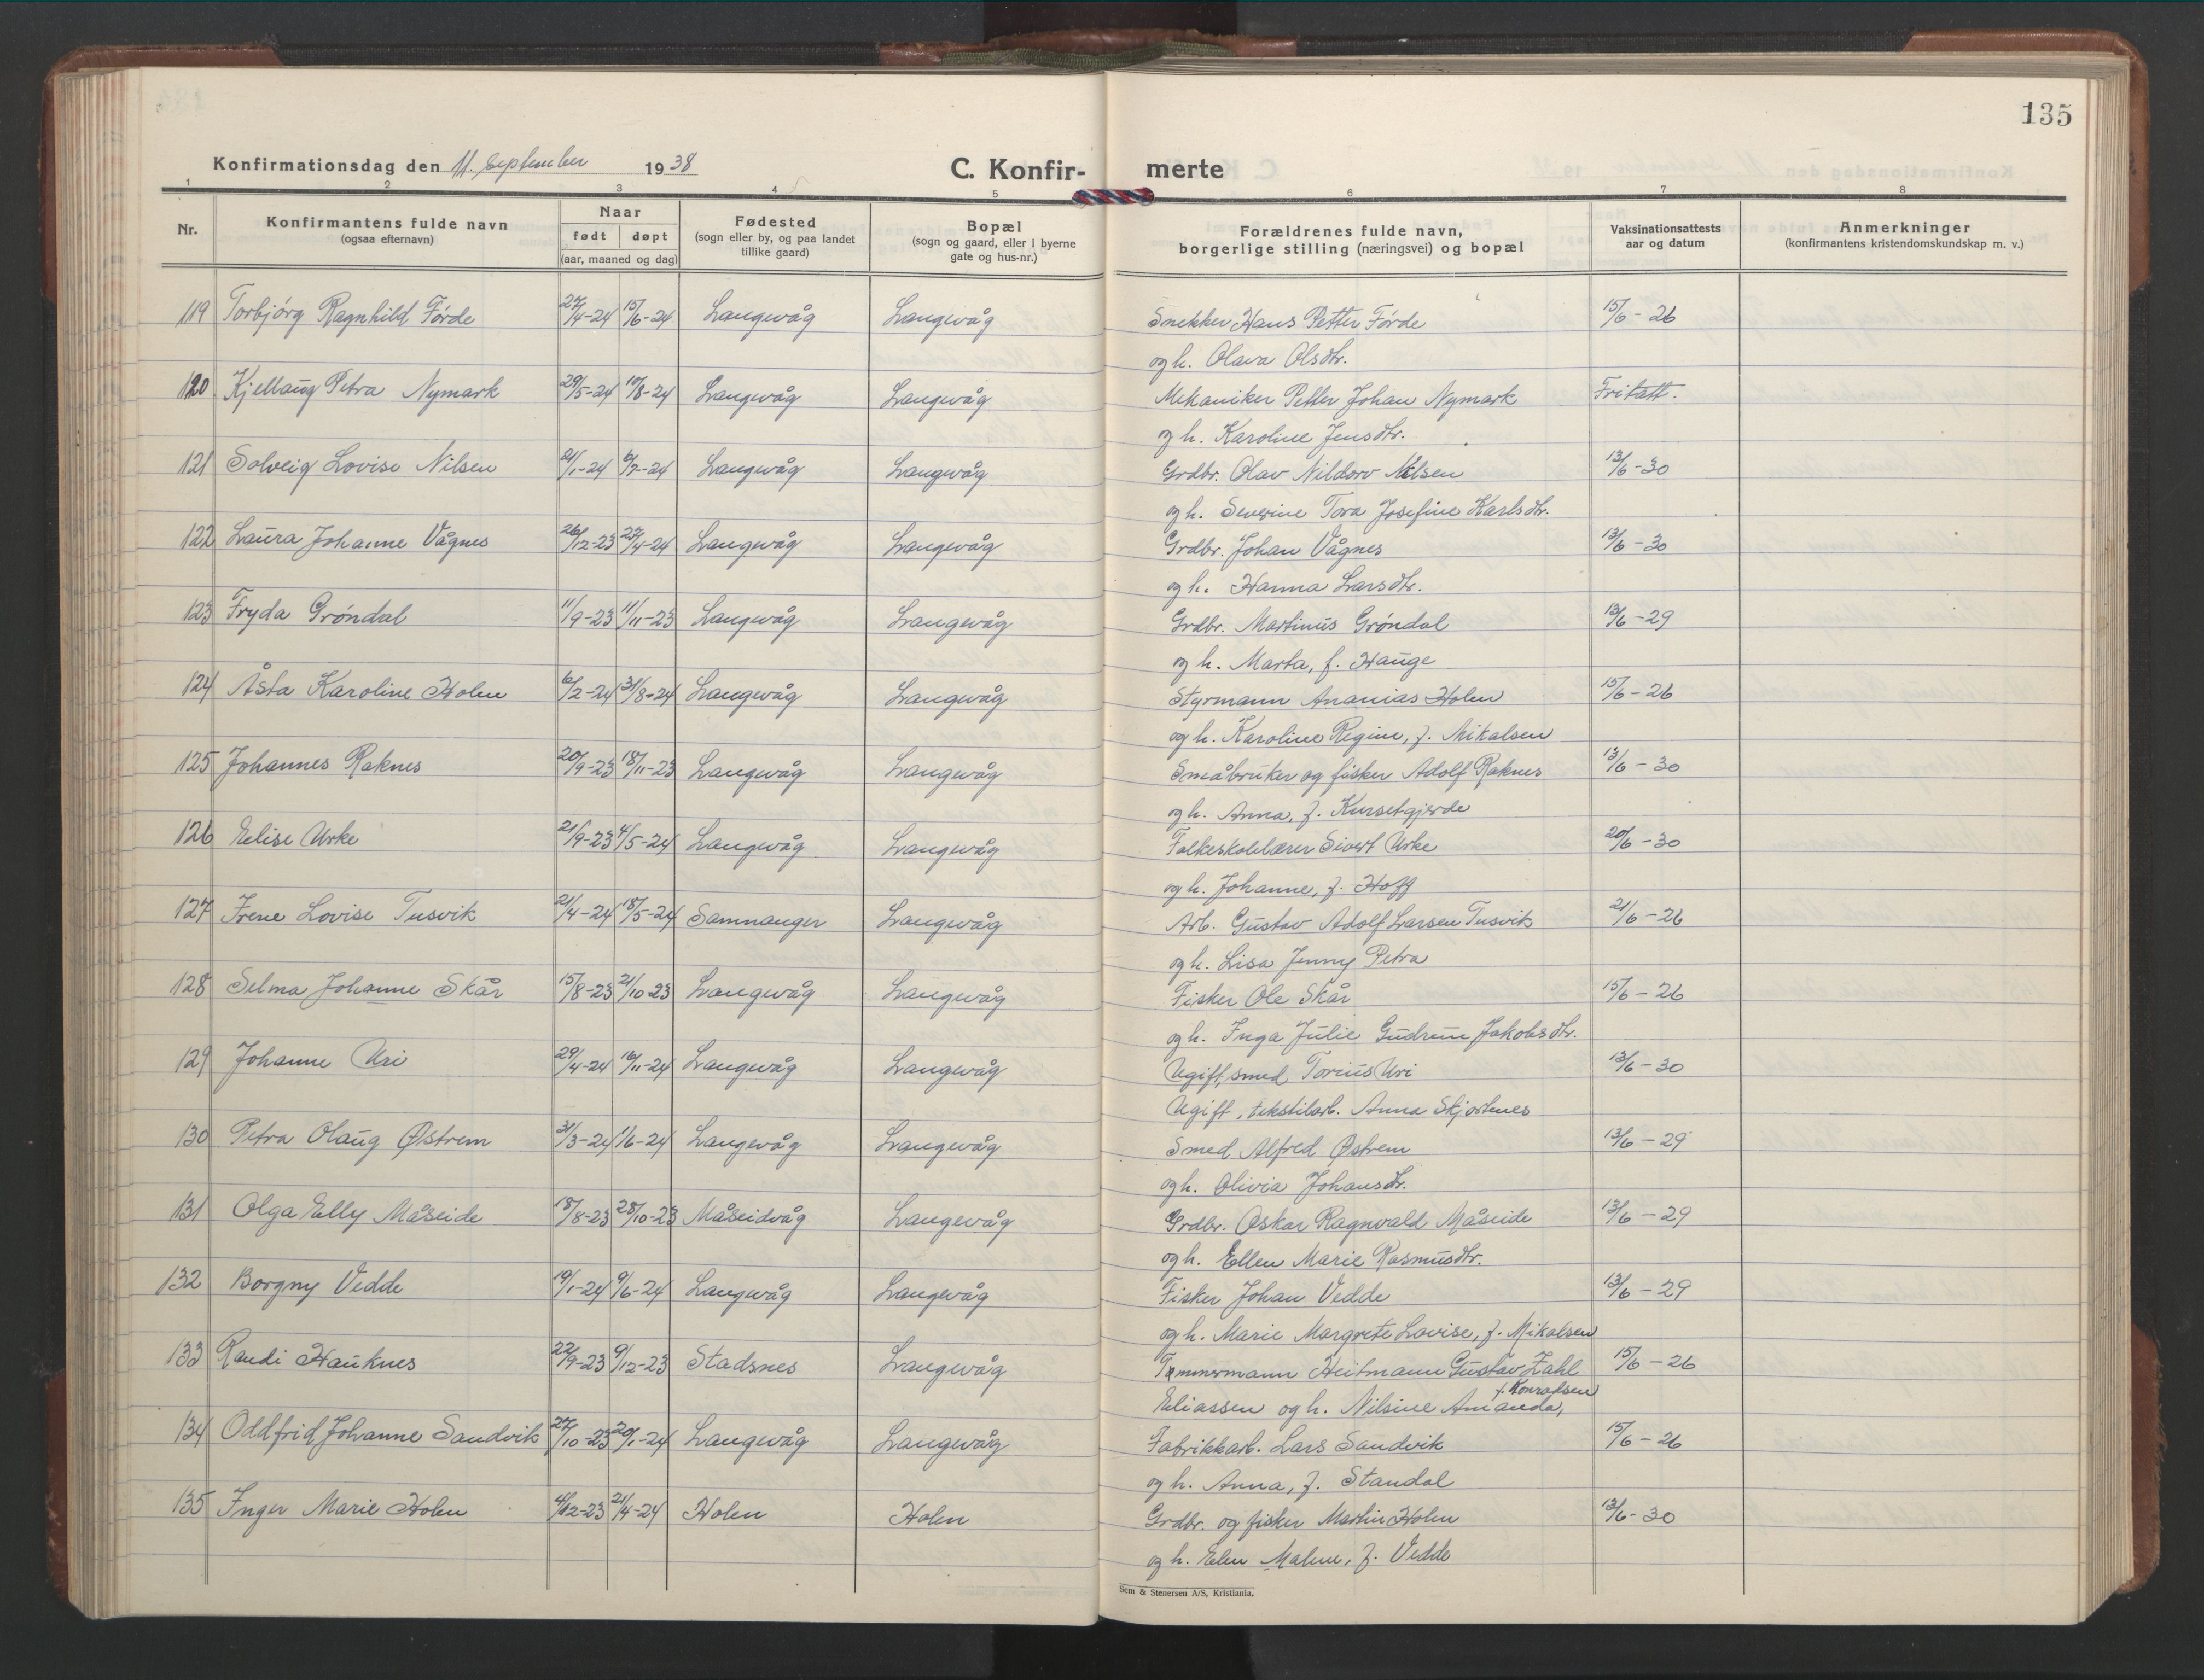 135
Konfirmationsdag den 11. September 1938
C. Konfirmerte
1 2 3 4 5 6 7 8
Nr.
Konfirmantens fulde navn
(ogsaa efternavn)
Naar
født døpt
(aar, maaned og dag)
Fødested
(sogn eller by, og paa landet
tillike gaard)
Bopæl
(sogn og gaard, eller i byerne
gate og hus-nr.)
Forældrenes fulde navn,
borgerlige stilling (næringsvei) og bopæl
Vaksinationsattests
aar og datum
Anmerkninger
(konfirmantens kristendomskundskap m. v.)
119 Torbjórg Ragnhild Fórde 27/4-24 15/6-24 Langevåg Langevåg Snekker Hans Petter Fórde 15/6-26
og h. Olava Olsdtr.
120 Kjellaug Petra Nymark 29/5-24 10/8-24 Langevåg Langevåg Mekaniker Petter Johan Nymark Fritatt.
og h. Karoline Jensdtr.
121 Solveig Lovise Nilsen 21/1-24 6/7-24 Langevåg Langevåg Grdbr. Olav Nildorv Nilsen 13/6-30
og h. Severine Tora Josefine Karlsdtr.
122 Laura Johanne Vågnes 26/12-23 27/4-24 Langevåg Langevåg Grdbr. Johan Vågnes 13/6-30
og h. Hanna Larsdtr.
123 Fryda Gróndal 11/9-23 11/11-23 Langevåg Langevåg Grdbr. Martinus Gróndal 13/6-29
og h. Marta, f. Hauge
124 Åsta Karoline Holen 6/2-24 31/8-24 Langevåg Langevåg Styrmann Ananias Holen 15/6-26
og h. Karoline Regine, f. Mikalsen
125 Johannes Raknes 20/9-23 18/11-23 Langevåg Langevåg Småbruker og fisker Adolf Raknes 13/6-30
og h. Anna, f. Kursetgjerde
126 Elise Urke 21/9-23 4/5-24 Langevåg Langevåg Folkeskolelærer Sivert Urke 20/6-30
og h. Johanne, f. Hoff
127 Irene Lovise Tusvik 21/4-24 18/5-24 Samnanger Langevåg Arb. Gustav Adolf Larsen Tusvik 21/6-26
og h. Lisa Jenny Petra
128 Selma Johanne Skår 15/8-23 21/10-23 Langevåg Langevåg Fisker Ole Skår 15/6-26
og h. Inga Julie Gudrun Jakobsdtr.
129 Johanne Uri 29/4-24 16/11-24 Langevåg Langevåg Ugift, smed Torius Uri 13/6-30
Ugift, tekstilarb. Anna Skjortnes
130 Petra Olaug Østrem 31/3-24 1/6-24 Langevåg Langevåg Smed Alfred Østrem 13/6-29
og h. Olivia Johansdtr.
131 Olga Elly Måseide 18/8-23 28/10-23 Måseidvåg Langevåg Grdbr. Oskar Ragnvald Måseide 13/6-29
og h. Ellen Marie Rasmusdtr.
132 Borgny Vedde 19/1-24 9/6-24 Langevåg Langevåg Fisker Johan Vedde 13/6-29
og h. Marie Margrete Lovise, f. Mikalsen
133 Randi Hauknes 22/9-23 9/12-23 Stadsnes Langevåg Tømmermann Heitmann Gustav Zahl 15/6-26
Eliassen og h. Nilsine Amanda, f. Konradsen
134 Oddfrid Johanne Sandvik 27/10-23 20/1-24 Langevåg Langevåg Fabrikkarb. Lars Sandvik 15/6-26
og h. Anna, f. Standal
135 Inger Marie Holen 4/12-23 21/4-24 Holen Holen Grdbr. og fisker Martin Holen 13/6-30
og h. Elen Malene, f. Vedde
Sem & Stenersen A/S, Kristiania.